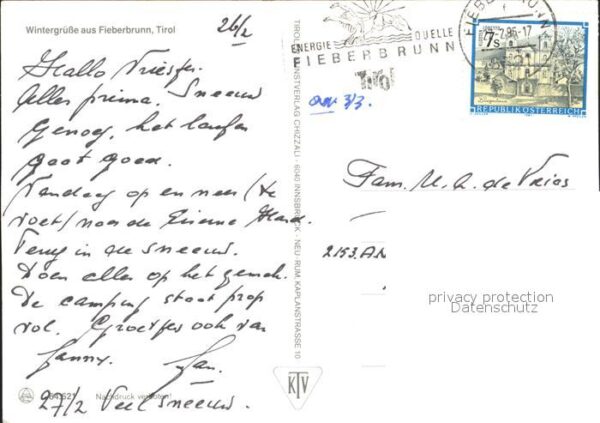 Wintergrüße aus Fieberbrunn, Tirol
26/2
Hallo
Alles prima. Sneeuw
genoeg, het laufen
gaat goed.
Vandaag op en neer (te
voet) naar de
Terug in de sneeuw.
Doen alles op het gemak.
De camping staat prop
vol. Groetjes ook van
Jan.
27/2 Veel sneeuw.
Nachdruck verboten!
TIROLER KUNSTVERLAG CHIZZALI · 6040 INNSBRUCK - NEU-RUM, KAPLANSTRASSE 10
KTV
ENERGIE QUELLE
FIEBERBRUNN
Tirol
3/3.
FIEBERBRUNN
7 S
REPUBLIK ÖSTERREICH
Fam. M. A. de Vries
2153.AN
privacy protection
Datenschutz